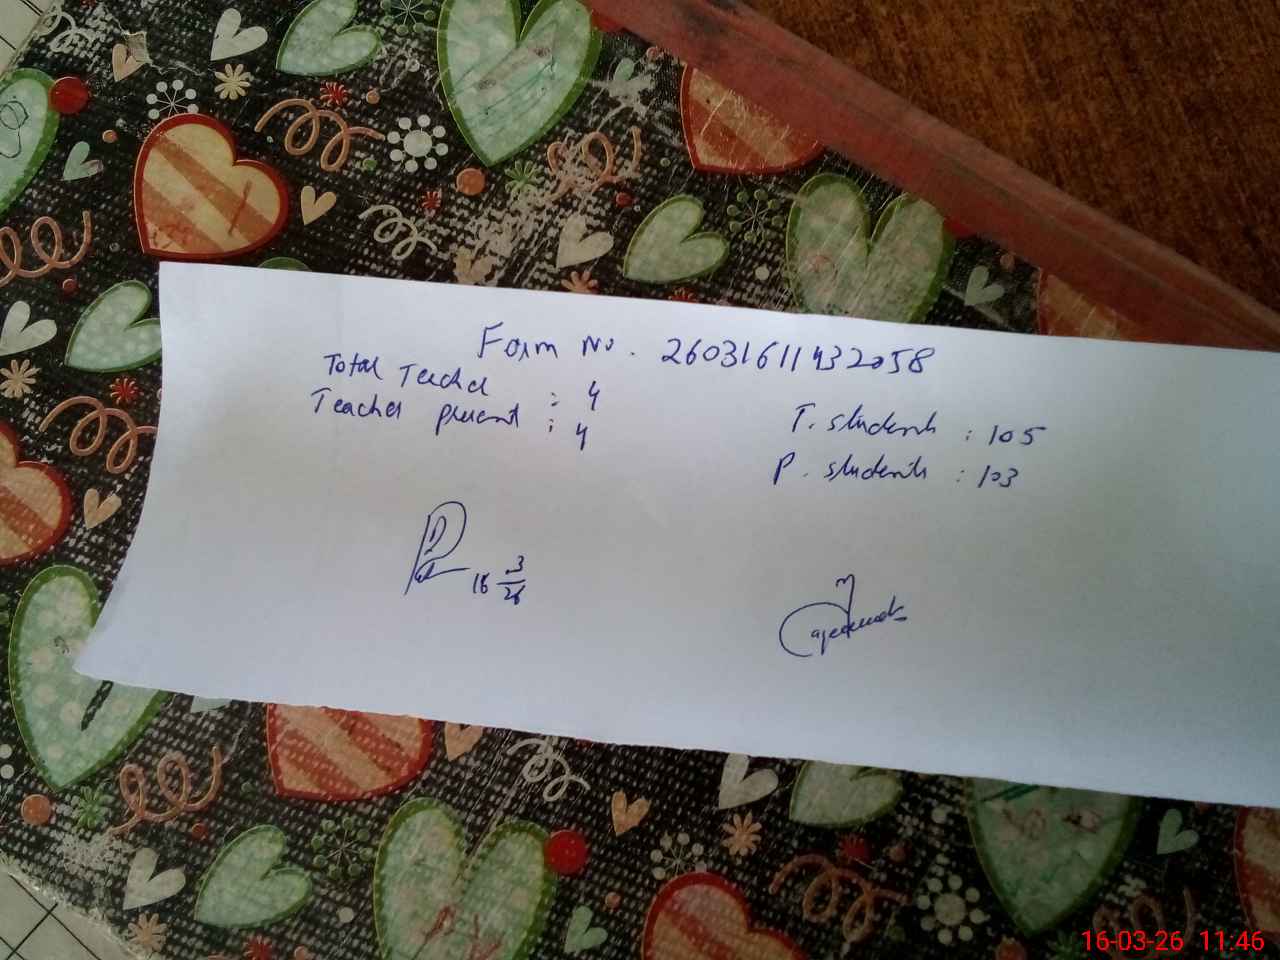 Form No. 26031611432058
Total Teacher : 4
Teacher present : 4
T. students : 105
P. students : 103
16 3/26
16-03-26 11:46